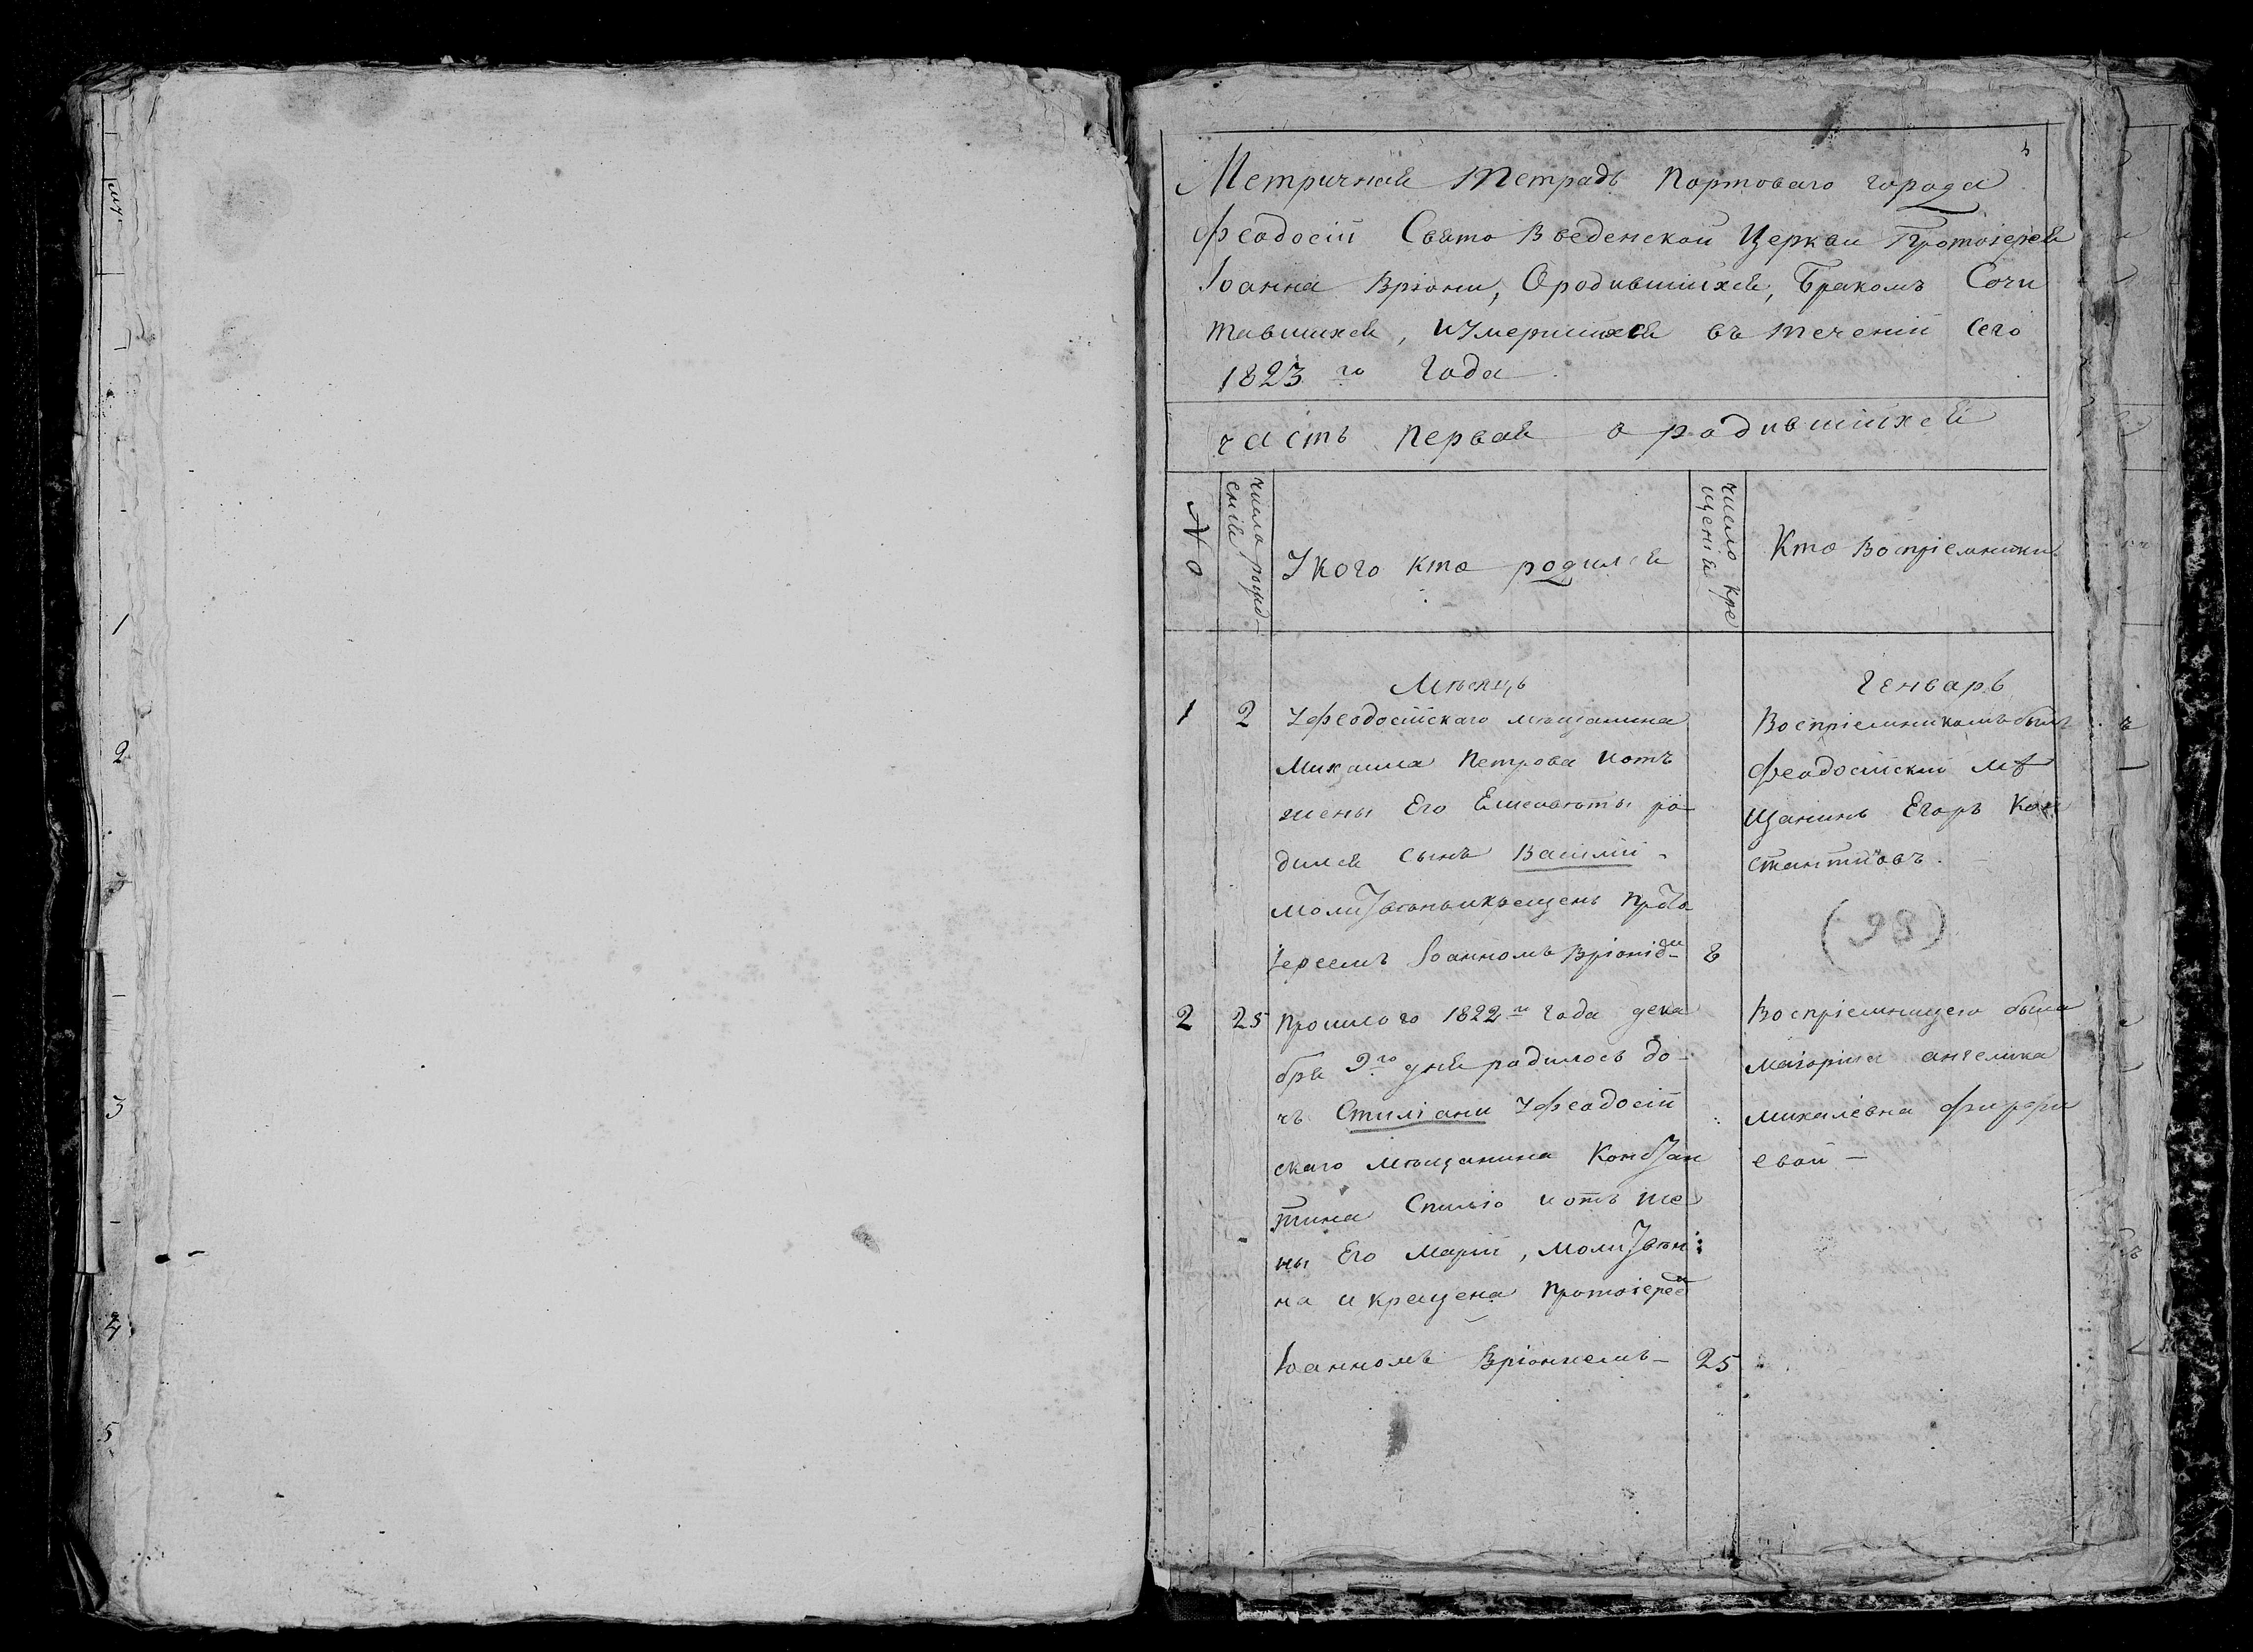 Метричная тетрадь портоваго города
Феодосіи Свято Введенской Церкви Протоіерея
Іоанна Вріони, О родившихся, Бракомъ Сочи
тавшихся, и умершихся въ теченіи сего
1823 го Года
часть первая о родившихся
№
число рожд-
енія
У кого кто родился
число кре
щенія
Кто Воспріемники
Мѣсяцъ
Генваръ
1
2
У феодосійскаго мѣщанина
Михаила Петрова и отъ
жены Его Елисаветы ро
дился Сынъ Василій.
молитвенъ и крещенъ прото
іереемъ Іоанномъ Вріоніем
8
Воспріемникомъ былъ
феодосійскій мѣ
щанинъ Егоръ Кон
стантиновъ.
(98)
2
25
прошлого 1822 го года дека
бря 9 го дня родилось до-
чь Стиліани у феодосій
скаго мѣщанина Констан
тина Спиліо и отъ же
ны Его Маріи, молитвен:
на и крещена протоіереем
Іоанномъ Вріоніемъ-
25
Воспріемницею была
маіорша ангелика
михалевна
евой-
1
2
3
4
5